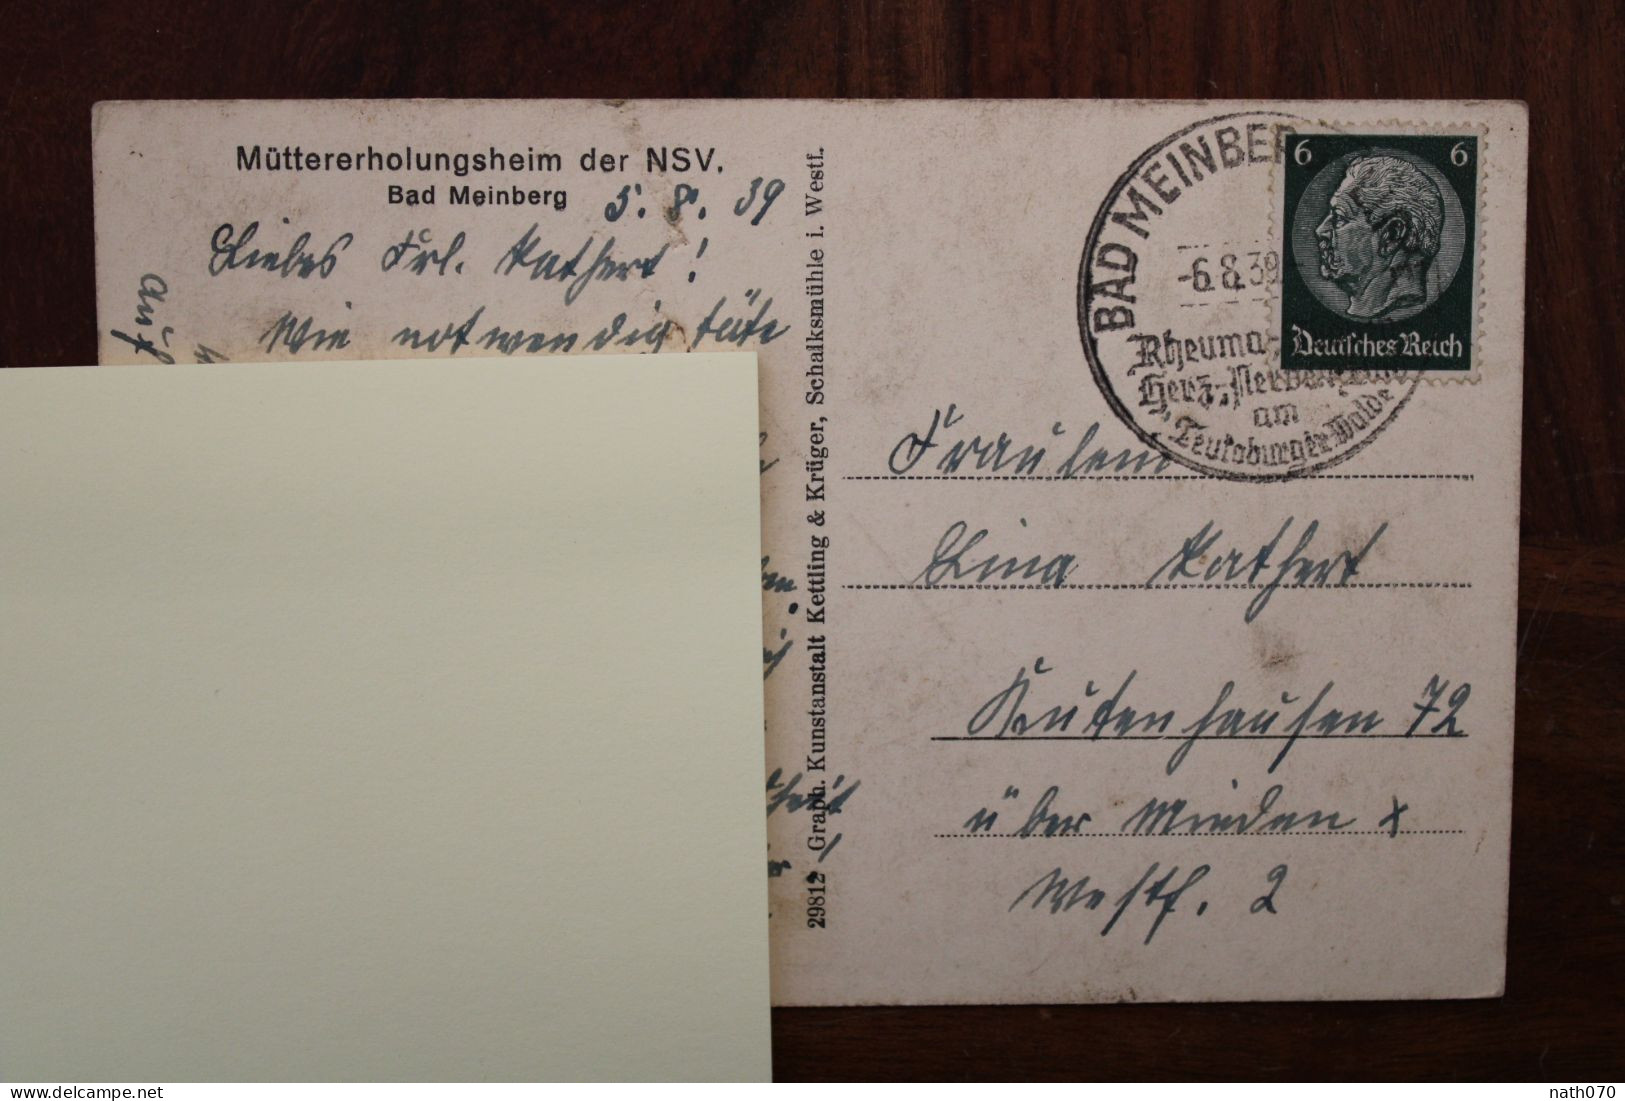 Müttererholungsheim der NSV.
Bad Meinberg
5. 8. 39
Liebes Frl. Rathert!
Wie notwendig täte
auf
29812 Graph. Kunstanstalt Kettling & Krüger, Schalksmühle i. Westf.
BAD MEINBERG
-6.8.39
Rheuma-
Herz-, Nerven-
am
Teutoburger Walde
6 6
Deutsches Reich
Fräulein
Lina Rathert
Kutenhausen 72
über Minden
Westf. 2
delcampe.net
nath070